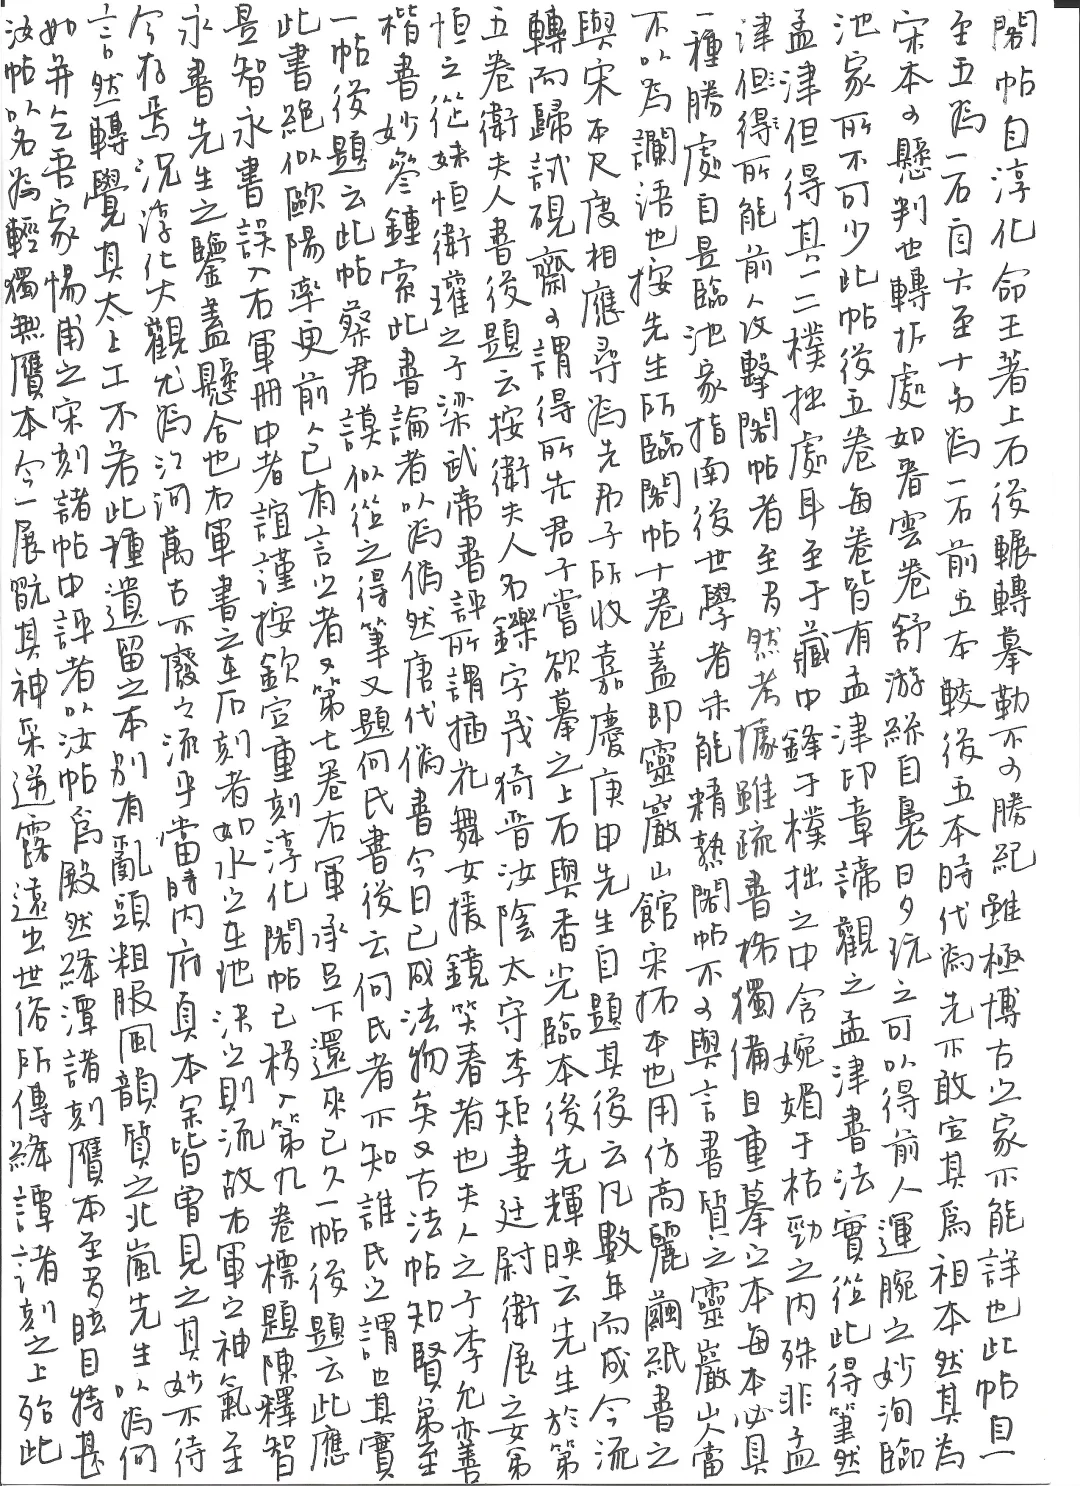 閣帖自淳化命王著上石後輾轉摹勒不可勝紀雖極博古之家不能詳也此帖自一
至五為一石自六至十另為一石前五本較後五本時代為先不敢定其為祖本然其為
宋本可懸判也轉折處如看雲卷舒游絲自裊日夕玩之可以得前人運腕之妙洵臨
池家所不可少此帖後五卷每卷皆有孟津印章諦觀之孟津書法實從此得筆然
孟津但得其一二樸拙處耳至于藏中鋒于樸拙之中含婉媚于枯勁之內殊非孟
津但得所能前人攻擊閣帖者至有然考據雖疏書格獨備且重摹之本每本必具
一種勝處自是臨池家指南後世學者未能精熟閣帖不可與言書質之靈巖山人當
不以為讕語也按先生所臨閣帖十卷蓋即靈巖山館宋拓本也用仿高麗繭紙書之
與宋本尺度相應尋為先君子所收嘉慶庚申先生自題其後云凡數年而成今流
轉而歸試硯齋可謂得所先君子嘗欲摹之上石與香光臨本後先輝映云先生於第
五卷衛夫人書後題云按衛夫人名鑠字茂猗晉汝陰太守李矩妻廷尉衛展之女弟
恒之從妹恒衛瓘之子梁武帝書評所謂插花舞女援鏡笑春者也夫人之子李允善
楷書妙參鍾索此書論者以為偽然唐代偽書今日已成法物矣又古法帖知賢弟至
一帖後題云此帖蔡君謨似從之得筆又題何氏書後云何氏者不知誰氏之謂也其實
此書絕似歐陽率更前人已有言之者又第七卷右軍承足下還來已久一帖後題云此應
是智永書誤入右軍冊中者誼謹按欽定重刻淳化閣帖已移入第九卷標題陳釋智
永書先生之鑒蓋懸合也右軍書之在石刻者如水之在地決之則流故右軍之神氣至
今存焉況淳化大觀尤為江河萬古不廢之流乎當時內府真本宋皆曾見之其妙不待
言然轉覺其太上工不若此種遺留之本別有亂頭粗服風韻質之北嵐先生以為何
如并乞吾家惕甫之宋刻諸帖中評者以汝帖為殿然絳潭諸刻贋本至有眩目特甚
汝帖以名為輕獨無贋本今一展翫其神采遞露遠出世俗所傳絳譚諸刻之上殆此